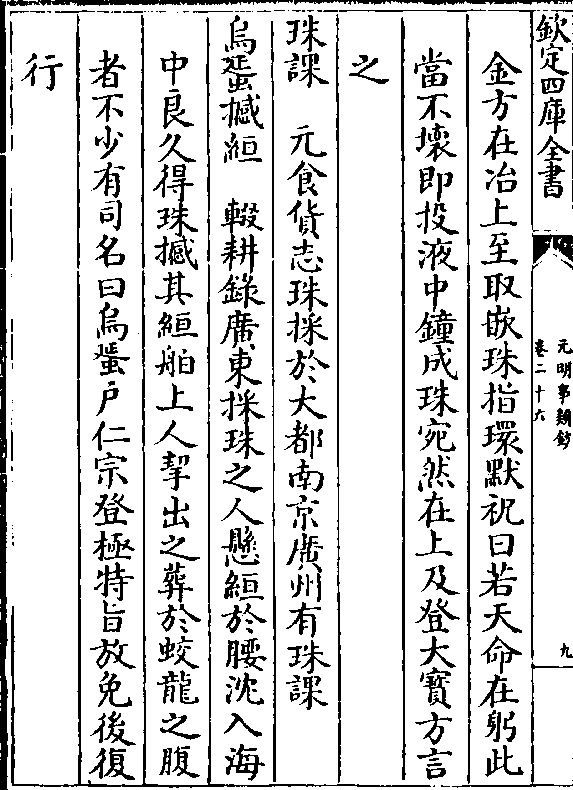 欽定四庫全書
元明事類鈔
卷二十六
九
金方在冶上至取嵌珠指環默祝曰若天命在躬此
當不壞即投液中鐘成珠宛然在上及登大寶方言
之
珠課　元食貨志珠採於大都南京廣州有珠課
烏蜑撼絙　輟耕錄廣東採珠之人懸絙於腰沈入海
中良久得珠撼其絙舶上人挈出之葬於蛟龍之腹
者不少有司名曰烏蜑户仁宗登極特旨放免後復
行